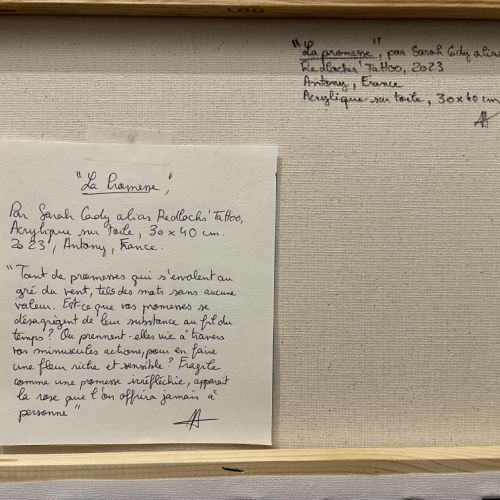 "La promesse", par Sarah Cady alias
Redlocks' Tattoo, 2023
Antony, France
Acrylique sur toile, 30x40 cm
"La Promesse",
Par Sarah Cady alias Redlocks' Tattoo,
Acrylique sur toile, 30 x 40 cm.
2023, Antony, France.
"Tant de promesses qui s'envolent au
gré du vent, tels des mats sans aucune
valeur. Est-ce que vos promesses se
désagrègent de leur substance au fil du
temps ? Ou prennent-elles vie à travers
vos minuscules actions, pour en faire
une fleur riche et sensible ? Fragile
comme une promesse irréfléchie, apparait
la rose que l'on offrira jamais à
personne"